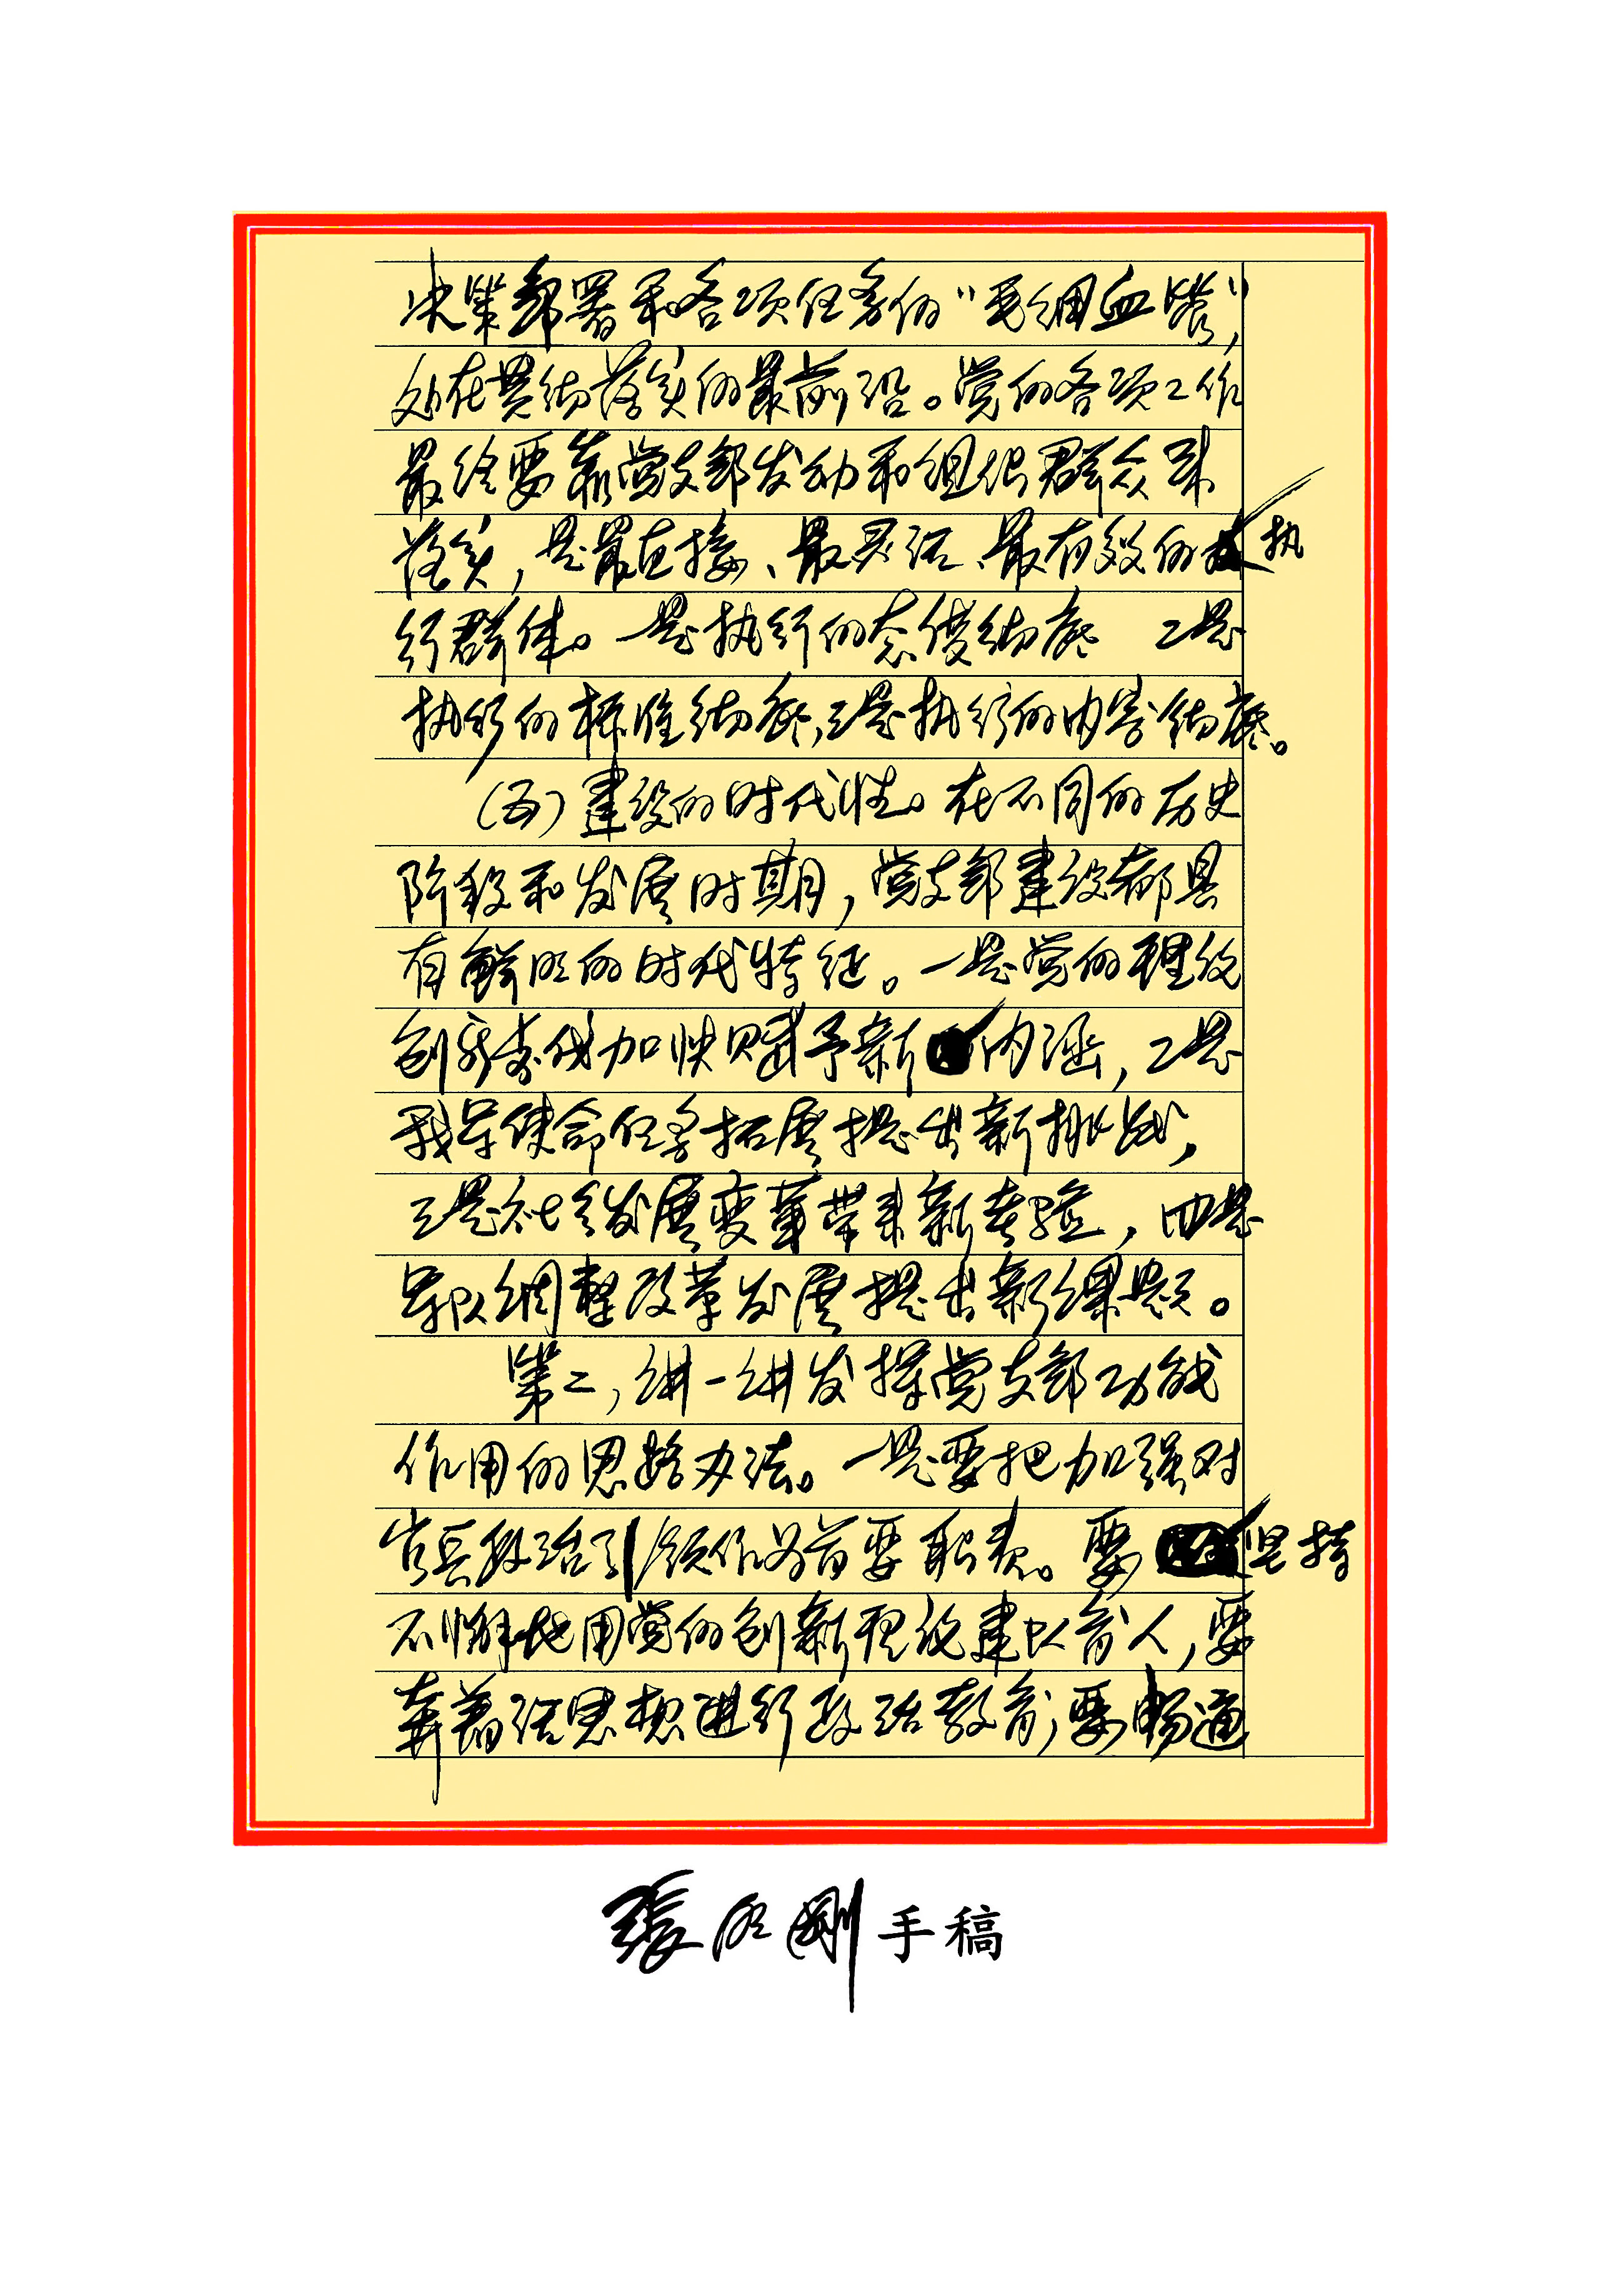 决策部署和各项任务的“毛细血管”，
处在贯彻落实的最前沿。党的各项工作
最终要靠党支部发动和组织群众来
落实，是最直接、最灵活、最有效的执
行群体。一是执行的态度彻底 二是
执行的标准彻底，三是执行的内容彻底。
（五）建设的时代性。在不同的历史
阶段和发展时期，党支部建设都具
有鲜明的时代特征。一是党的理论
创新成加快赋予新内涵，二是
我军使命任务拓展提出新挑战，
三是社会发展变革带来新考验，四是
军队调整改革发展提出新课题。
第二，讲一讲发挥党支部功能
作用的思路办法。一是要把加强对
官兵政治引领作为首要职责。要坚持
不懈地用党的创新理论建队育人，要
奔着活思想进行政治教育，要畅通
張明剛手稿